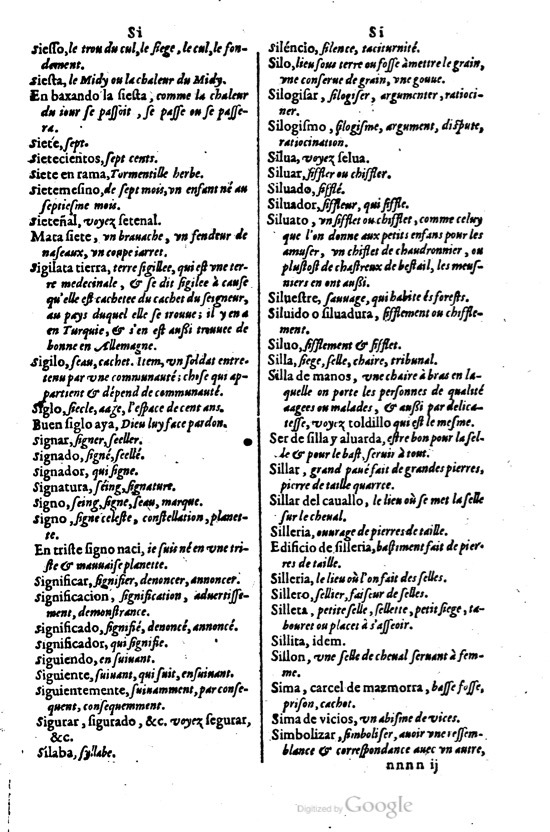 Si
Siesso, le trou du cul, le siege, le cul, le fon-
dement.
Siesta, le Midy ou la chaleur du Midy.
En baxando la siesta, comme la chaleur
du iour se passoit, se passe ou se passe-
ra.
Siete, sept.
Sietecientos, sept cents.
Siete en rama, Tormentille herbe.
Sietemesino, de sept mois, vn enfant né au
septiesme mois.
Sieteñal, voyez setenal.
Mata siete, vn brauache, vn fendeur de
naseaux, vn coupe iarret.
Sigilata tierra, terre sigillee, qui est vne ter-
re medecinale, & se dit sigilee à cause
qu'elle est cachetee du cachet du seigneur,
au pays duquel elle se trouue; il y en a
en Turquie, & s'en est aussi trouuee de
bonne en Allemagne.
Sigilo, seau, cachet. Item, vn soldat entre-
tenu par vne communauté; chose qui ap-
partient & dépend de communauté.
Siglo, siecle, aage, l'espace de cent ans.
Buen siglo aya, Dieu luy face pardon.
Signar, signer, seeller.
Signado, signé, seellé.
Signador, qui signe.
Signatura, séing, signature.
Signo, seing, signe, seau, marque.
Signo, signe celeste, constellation, planet-
te.
En triste signo naci, ie suis né en vne tri-
ste & mauuaise planette.
Significar, signifier, denoncer, annoncer.
Significacion, signification, aduertisse-
ment, demonstrance.
Significado, signifié, denoncé, annoncé.
Significador, qui signifie.
Siguiendo, en suiuant.
Siguiente, suiuant, qui suit, ensuiuant.
Siguientemente, suiuamment, par conse-
quent, consequemment.
Sigurar, sigurado, &c. voyez segurar,
&c.
Silaba, syllabe.
Si
Siléncio, silence, taciturnité.
Silo, lieu sous terre ou fosse à mettre le grain,
vne conserue de grain, vne gouue.
Silogisar, silogiser, argumenter, ratioci-
ner.
Silogismo, silogisme, argument, dispute,
ratiocination.
Silua, voyez selua.
Siluar, siffler ou chiffler.
Siluado, sifflé.
Siluador, siffleur, qui siffle.
Siluato, vn sifflet ou chifflet, comme celuy
que l'on donne aux petits enfans pour les
amuser, vn chiflet de chaudronnier, ou
plustost de chastreux de bestail, les meus-
niers en ont aussi.
Siluestre, sauuage, qui habite és forests.
Siluido o siluadura, sifflement ou chiffle-
ment.
Siluo, sifflement & sifflet.
Silla, siege, selle, chaire, tribunal.
Silla de manos, vne chaire à bras en la-
quelle on porte les personnes de qualité
aagees ou malades, & aussi par delica-
tesse, voyez toldillo qui est le mesme.
Ser de silla y aluarda, estre bon pour la sel-
le & pour le bast, seruir à tout.
Sillar, grand paué fait de grandes pierres,
pierre de taille quarree.
Sillar del cauallo, le lieu où se met la selle
sur le cheual.
Silleria, ouurage de pierres de taille.
Edificio de silleria, bastiment fait de pier-
res de taille.
Silleria, le lieu où l'on fait des selles.
Sillero, sellier, faiseur de selles.
Silleta, petite selle, sellette, petit siege, ta-
bouret ou placet à s'asseoir.
Sillita, idem.
Sillon, vne selle de cheual seruant à fem-
me.
Sima, carcel de mazmorra, basse fosse,
prison, cachot.
Sima de vicios, vn abisme de vices.
Simbolizar, simboliser, auoir vne ressem-
blance & correspondance auec vn autre,
nnnn ij
Digitized by Google